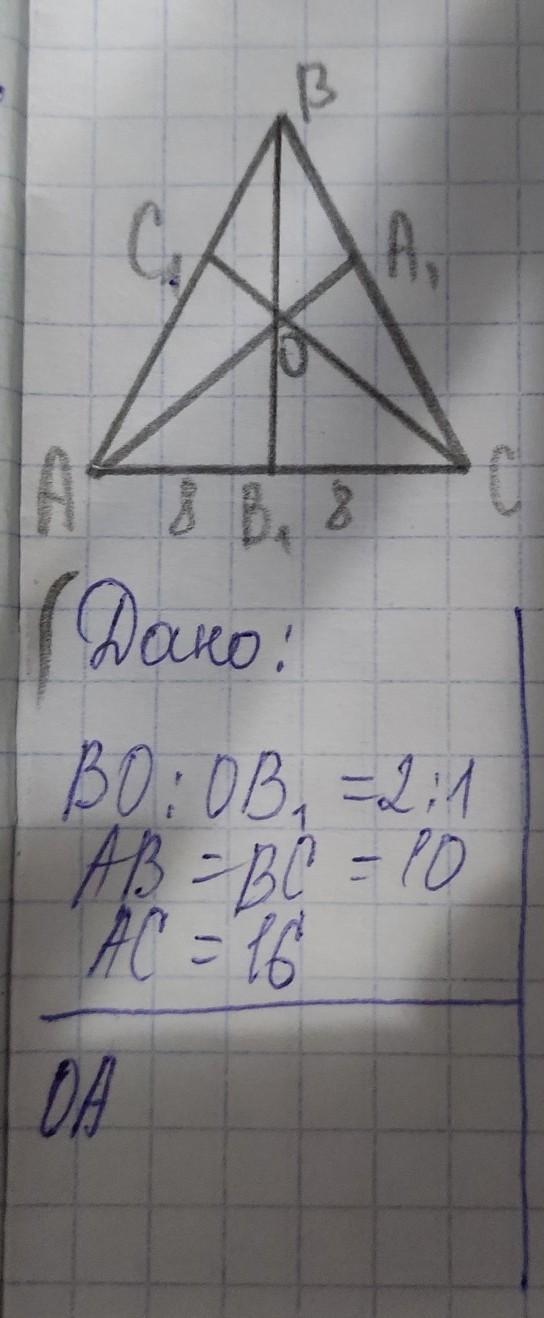 B
C₁ A₁
O
A 8 B₁ 8 C
Дано:
BO : OB₁ = 2 : 1
AB = BC = 10
AC = 16
OA